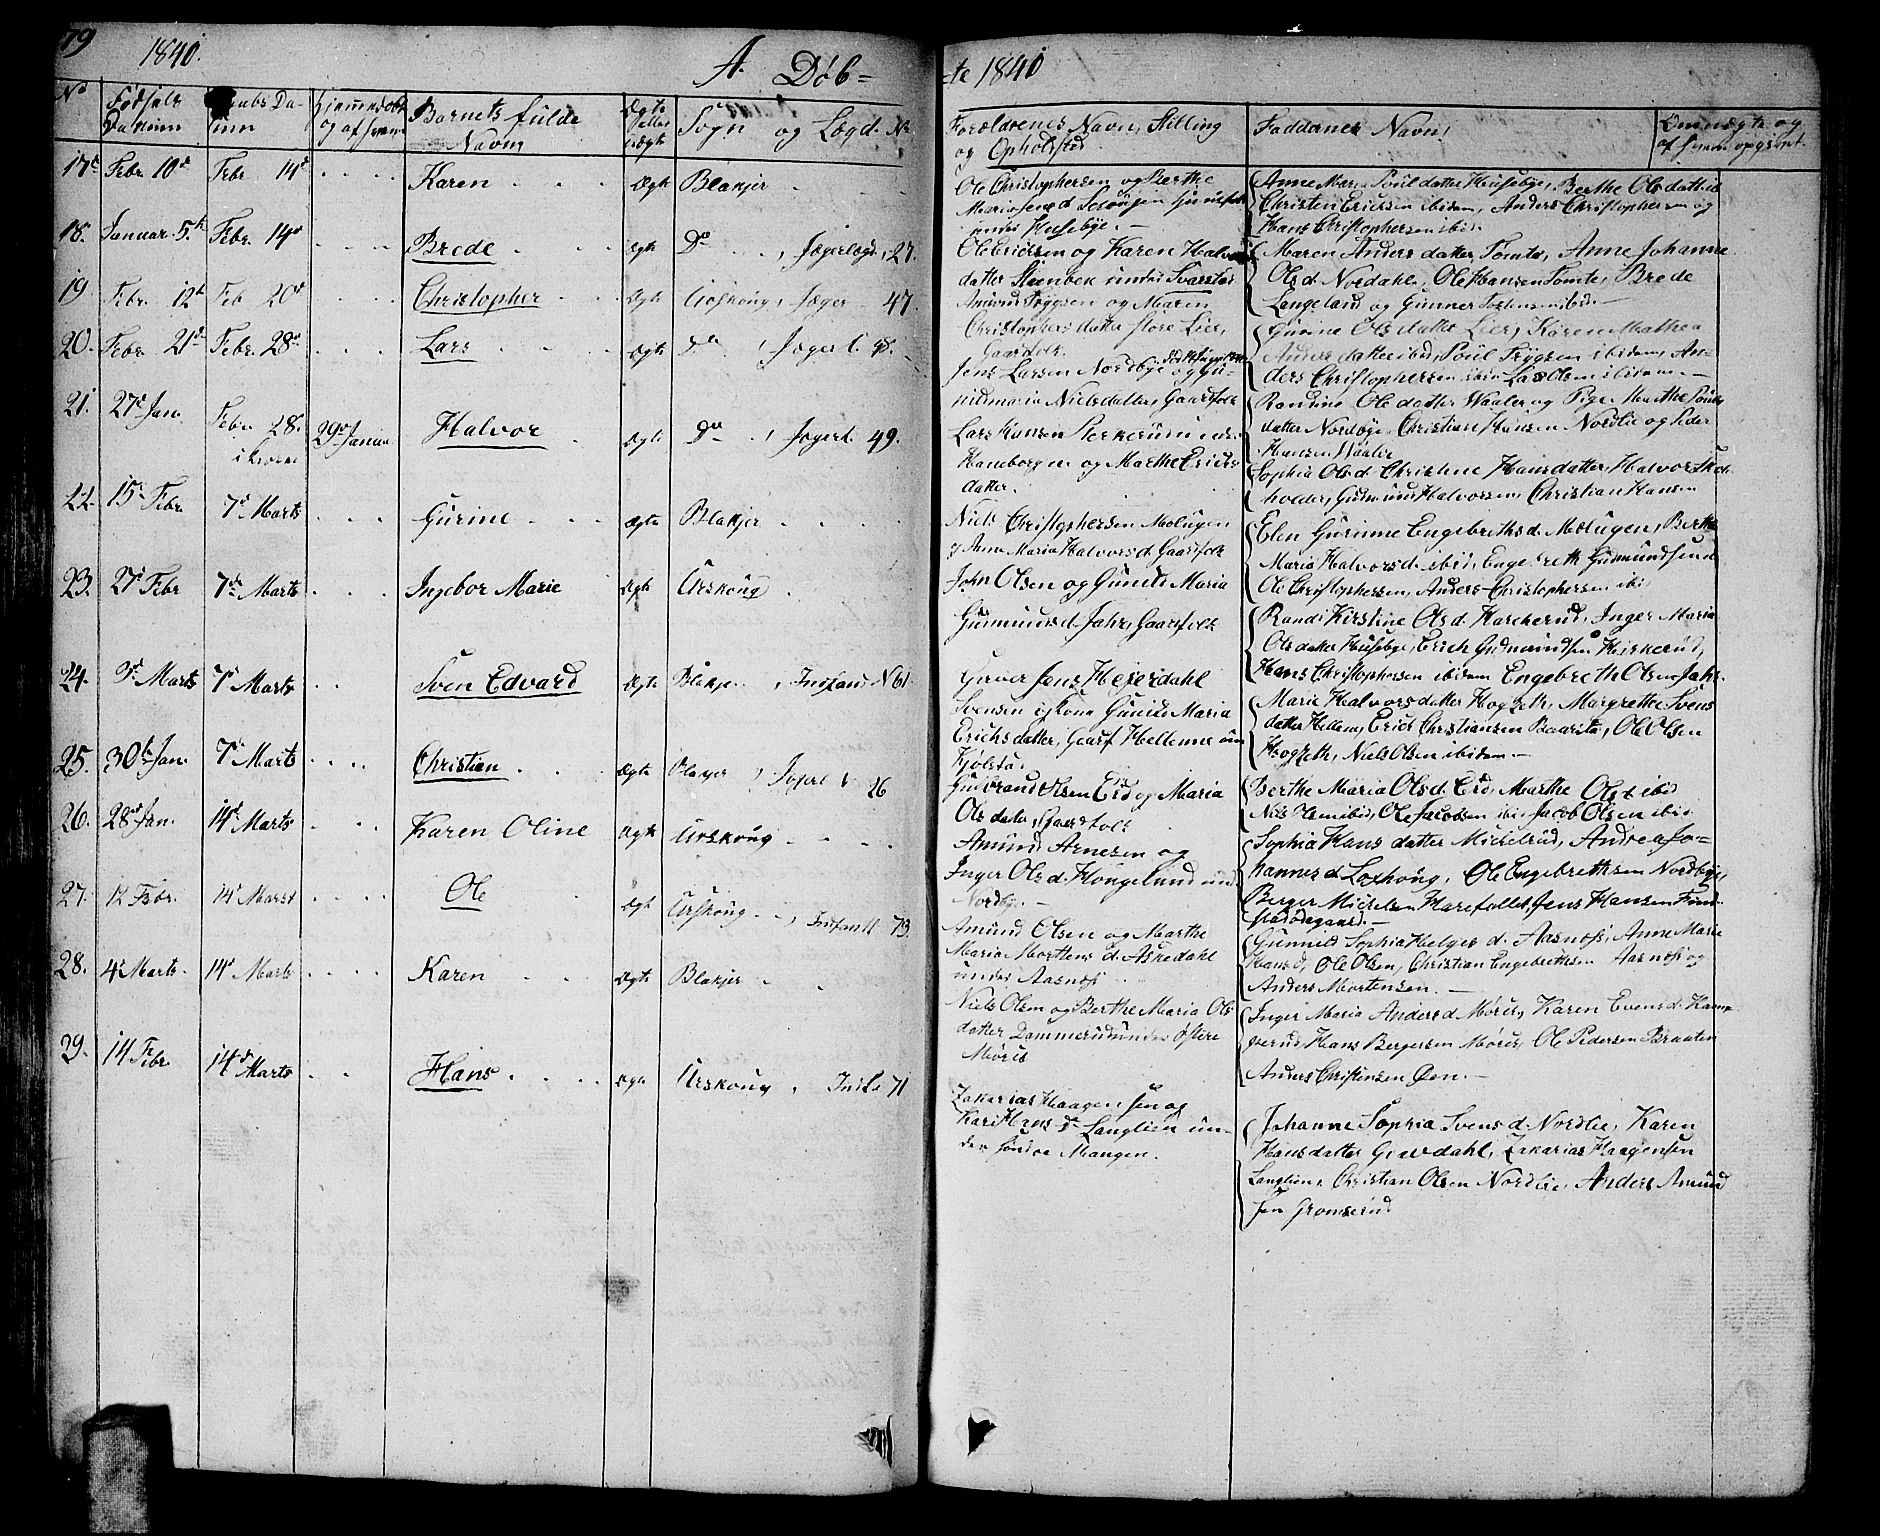 79
1840.
A. Døb=
te 1840
No
Fødsels Datum
Daabs Datum
Hjemmedøbt og af hvem
Barnets fulde Navn
Ægte eller uægte
Sogn og Lægd. No
Forældrenes Navn, Stilling og Opholdsted
Faddernes Navn
17de Febr. 10d Febr. 14d Karen Ægte Blakjer
Ole Christophersen og Berthe
under Husebye.
Anne Marie Poulsdatter Husebye, Berthe Olsdatter
Christen Ericksen ibidem, Anders Christophersen og
Hans Christophersen ibid.
18. Januar 5. Febr. 14d Brede Ægte Do Jægerlægd 27.
Ole Ericksen og Karen Halvors
datter Steenbek under
Maren Andersdatter Tomter, Anne Johanne
Olsd. Nordahl, Ole Hansen Tomte, Brede
Langeland og Gunner ibid.
19. Febr. 12d Feb 20d Christopher Ægte Urskoug, Jæger 47.
Amund Tryggsen og Maren
Christophersdatter store Lier,
Gaardfolk.
Gurine Olsdatter Lier, Karen Mathea
Andersdatter ibid, Poul Trygsen ibidem, An-
ders Christophersen ibid Lars Olsen ibidem.
20. Febr. 21d Febr. 28d Lars Ægte Do Jægerl. 48.
Jens Larsen Nordbye og Gu-
nildmaria Nielsdatter, Gaardfolk
Randine Olsdatter Waaler og Pige Marthe Pouls
datter Nordbye, Christian Hansen Nordlie og Peder
Hansen Waaler
21. 27d Jan. Febr. 28. i kirken 29d Januar Halvor Ægte Do Jægerl. 49.
Lars Hansen
Haneborgen og Marthe Erichs-
datter.
Sophia Olsd. Christine Hansdatter, Halvor
Gudmund Halvorsen, Christian Hansen
22. 15. Febr. 7d Marts Gurine Ægte Blakjer
Niels Christophersen Molugen
og Anne Maria Halvorsd. Gaardfolk
Elen Gurinne Engebrethsd. Mølugen, Berthe
Maria Halvorsd. ibid, Engebreth Gudmundsen
Ole Christophersen, Anders Christophersen ibid
23. 27d Febr 7de Marts Ingebor Marie Ægte Urskoug
John Olsen og Gunild Maria
Gudmundsd. Jahr, Gaardfolk
Randi Kirstine Olsd. Harkerud, Inger Maria
Olsdatter Husebye, Erich Gudmundsen Heiskerud,
Hans Christophersen ibidem Engebreth Olsen Jahr.
24. 3d Marts 7d Marts Sven Edvard Ægte Blakjer, Indfand. N 61.
Jens Hejerdahl
Svensen og Kone Gunild Maria
Erichsdatter, Hellenne un
Kjølstad.
Marie Halvorsdatter Hogseth, Margrethe Svens
datter Hellem, Erick Christiansen Ole Olsen
Hogseth, Niels Olsen ibidem
25. 30te Jan. 7d Marts Christian Ægte Blakjer, Jægerl 26
Gudbrand Olsen Eid og Maria
Olsdatter, Gaardfolk
Berthe Maria Olsd. Eid, Marthe Olsd ibid
Niels Olsen ibid, Ole Jacobsen ibid Jacob Olsen ibid
26. 28d Jan. 14d Marts Karen Oline Ægte Urskoug
Amund Arnesen og
Inger Olsd. Hongslund und
Nordbye.
Sophia Hansdatter Mickelrud, Andrea Jo-
hannesd Loxhoug, Ole Engebrethsen Nordbye,
Berger Mickelsen Harefallet, Jens Hansen
27. 12 Febr. 14d Marst Ole Ægte Urskoug, Infantl 73.
Amund Olsen og Marthe
Maria Mortensd. Asredahl
under Aasnæss
Gunnild Sophia Helgesd. Aasnæss, Anne Marie
Hansd, Ole Olsen, Christian Engebrethsen Aasnæss og
Anders Mortensen.
28. 4d Marts. 14d Marts Karen Ægte Blakjer
Niels Olsen og Berthe Maria Ols
datter Dammerud under Østere
Møris
Inger Maria Andersd Møris, Karen Evensd. Kam-
perud, Hans Bergersen Møris, Ole Pedersen Braaten
Anders Christensen Øen.
29. 14 Febr. 14d Marts Hans Ægte Urskoug, Inf. L 71
Zakarias Haagensen og
Kari Hansd. Langlien un-
der søndre Mangen.
Johanne Sophia Svensd. Nordlie, Karen
Hansdatter Gravdahl, Zakarias Haagensen
Langlien, Christian Olsen Nordlie, Anders Amund
sen Gromserud